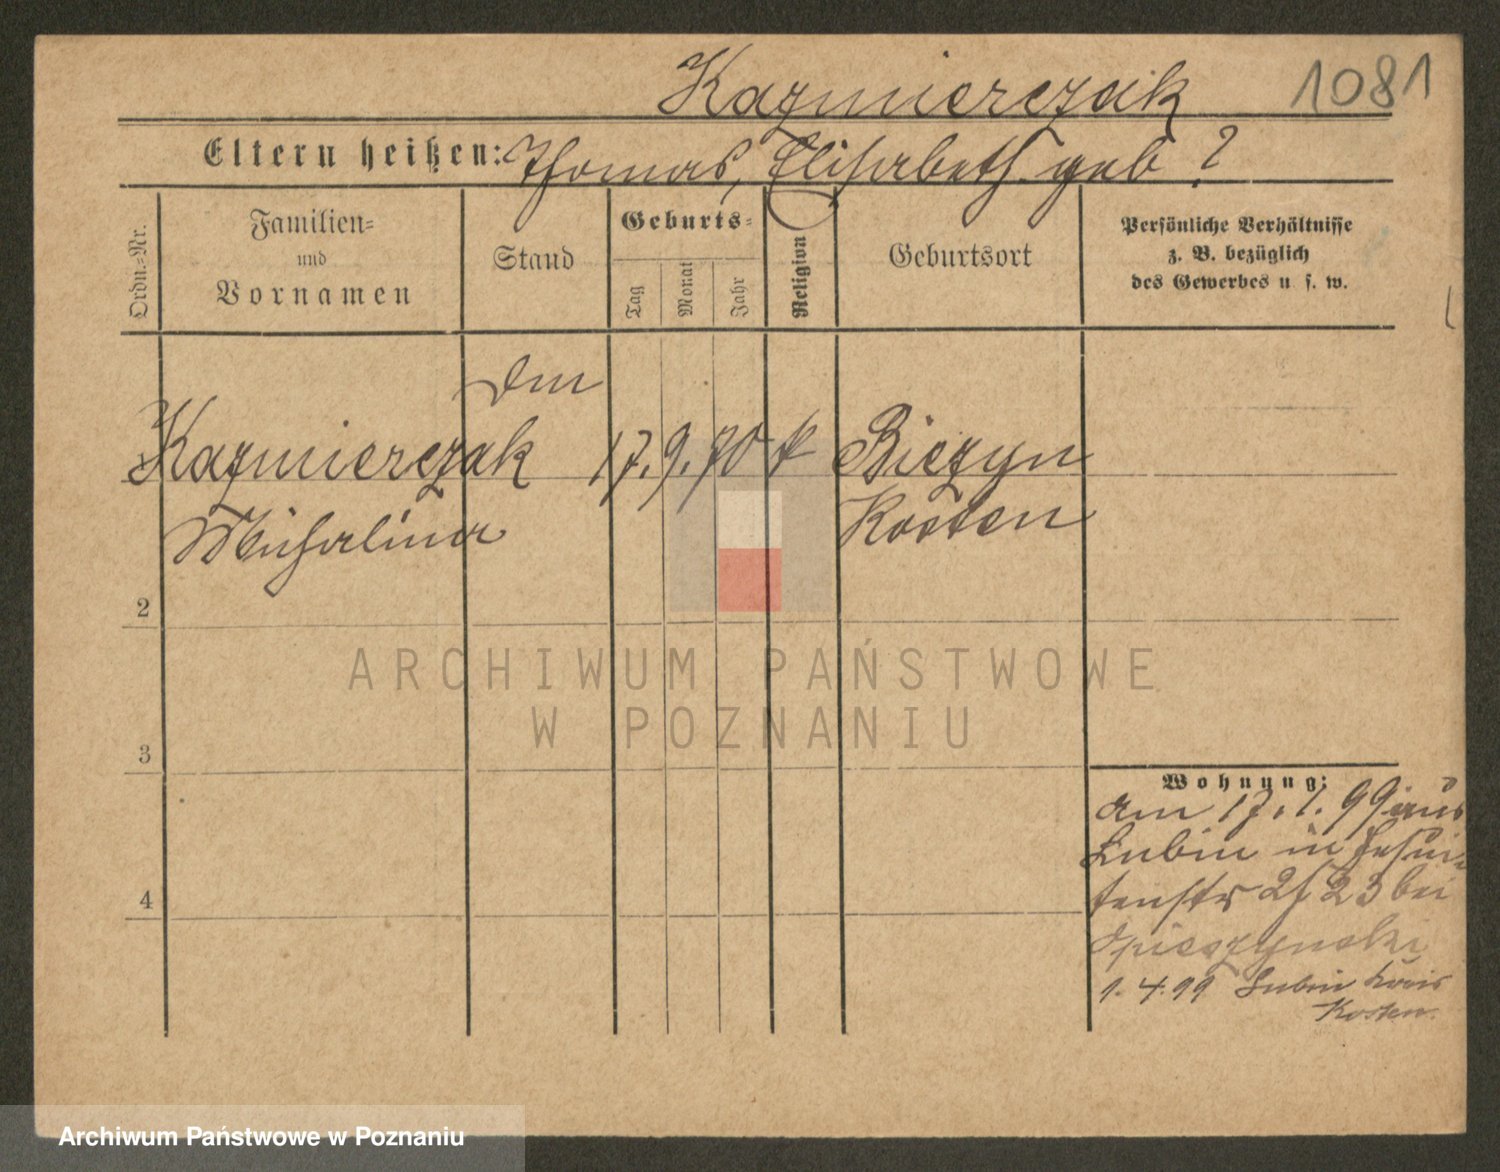 Kazmierczak 1081
Eltern heißen: Thomas, Elisabeth geb ?
Ordn.-Nr.
Familien-
und
Vornamen
Stand
Geburts-
Tag
Monat
Jahr
Religion
Geburtsort
Persönliche Verhältnisse
z. B. bezüglich
des Gewerbes u. s. w.
Kazmierczak 17. 9. 70 k Biezyn
Kosten
2
3
4
Wohnung:
am 17. 1. 99 aus
Lubin in Jesui-
tenstr 23 bei
1. 4. 99 Lubin Kreis
Kosten.
ARCHIWUM PAŃSTWOWE
W POZNANIU
Archiwum Państwowe w Poznaniu